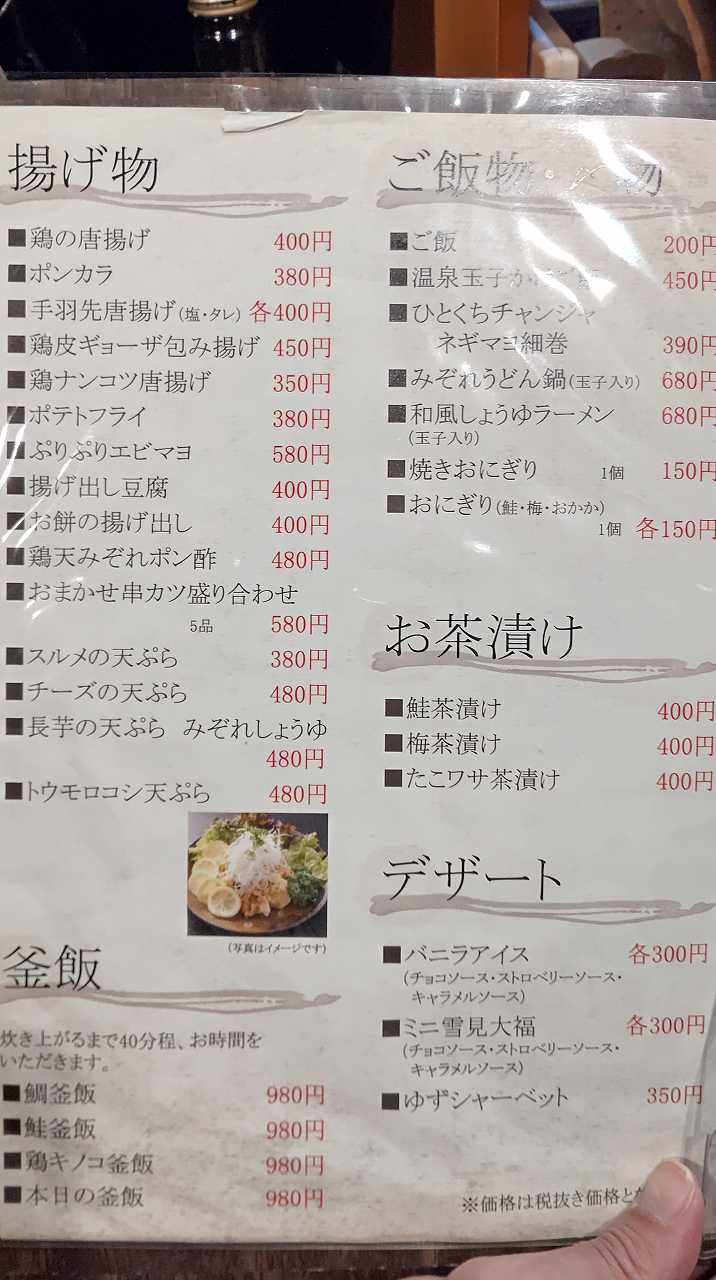 揚げ物
■鶏の唐揚げ 400円
■ポンカラ 380円
■手羽先唐揚げ(塩・タレ) 各400円
■鶏皮ギョーザ包み揚げ 450円
■鶏ナンコツ唐揚げ 350円
■ポテトフライ 380円
■ぷりぷりエビマヨ 580円
■揚げ出し豆腐 400円
■お餅の揚げ出し 400円
■鶏天みぞれポン酢 480円
■おまかせ串カツ盛り合わせ
5品 580円
■スルメの天ぷら 380円
■チーズの天ぷら 480円
■長芋の天ぷら みぞれしょうゆ
480円
■トウモロコシ天ぷら 480円
(写真はイメージです)
釜飯
炊き上がるまで40分程、お時間を
いただきます。
■鯛釜飯 980円
■鮭釜飯 980円
■鶏キノコ釜飯 980円
■本日の釜飯 980円
ご飯物・〆物
■ご飯 200円
■温泉玉子かけご飯 450円
■ひとくちチャンジャ
ネギマヨ細巻 390円
■みぞれうどん鍋(玉子入り) 680円
■和風しょうゆラーメン 680円
(玉子入り)
■焼きおにぎり 1個 150円
■おにぎり(鮭・梅・おかか)
1個 各150円
お茶漬け
■鮭茶漬け 400円
■梅茶漬け 400円
■たこワサ茶漬け 400円
デザート
■バニラアイス 各300円
(チョコソース・ストロベリーソース・
キャラメルソース)
■ミニ雪見大福 各300円
(チョコソース・ストロベリーソース・
キャラメルソース)
■ゆずシャーベット 350円
※価格は税抜き価格と